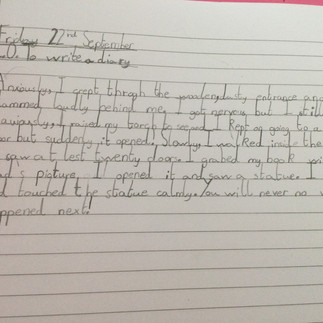 Friday 22nd September
.O. to write a diary
Anxiously, I crept throgh the entrance and
ammed loudly behind me. I got nervous but I still
I raised my torch I kept on going to a
oor but suddenly it opened. Slowly, I walked insde the
I saw at lest twenty doors. I grabed my book wi
d's picture. I opened it and saw a statue. I
d touched the statue calmy. You will never no w
ppened next!